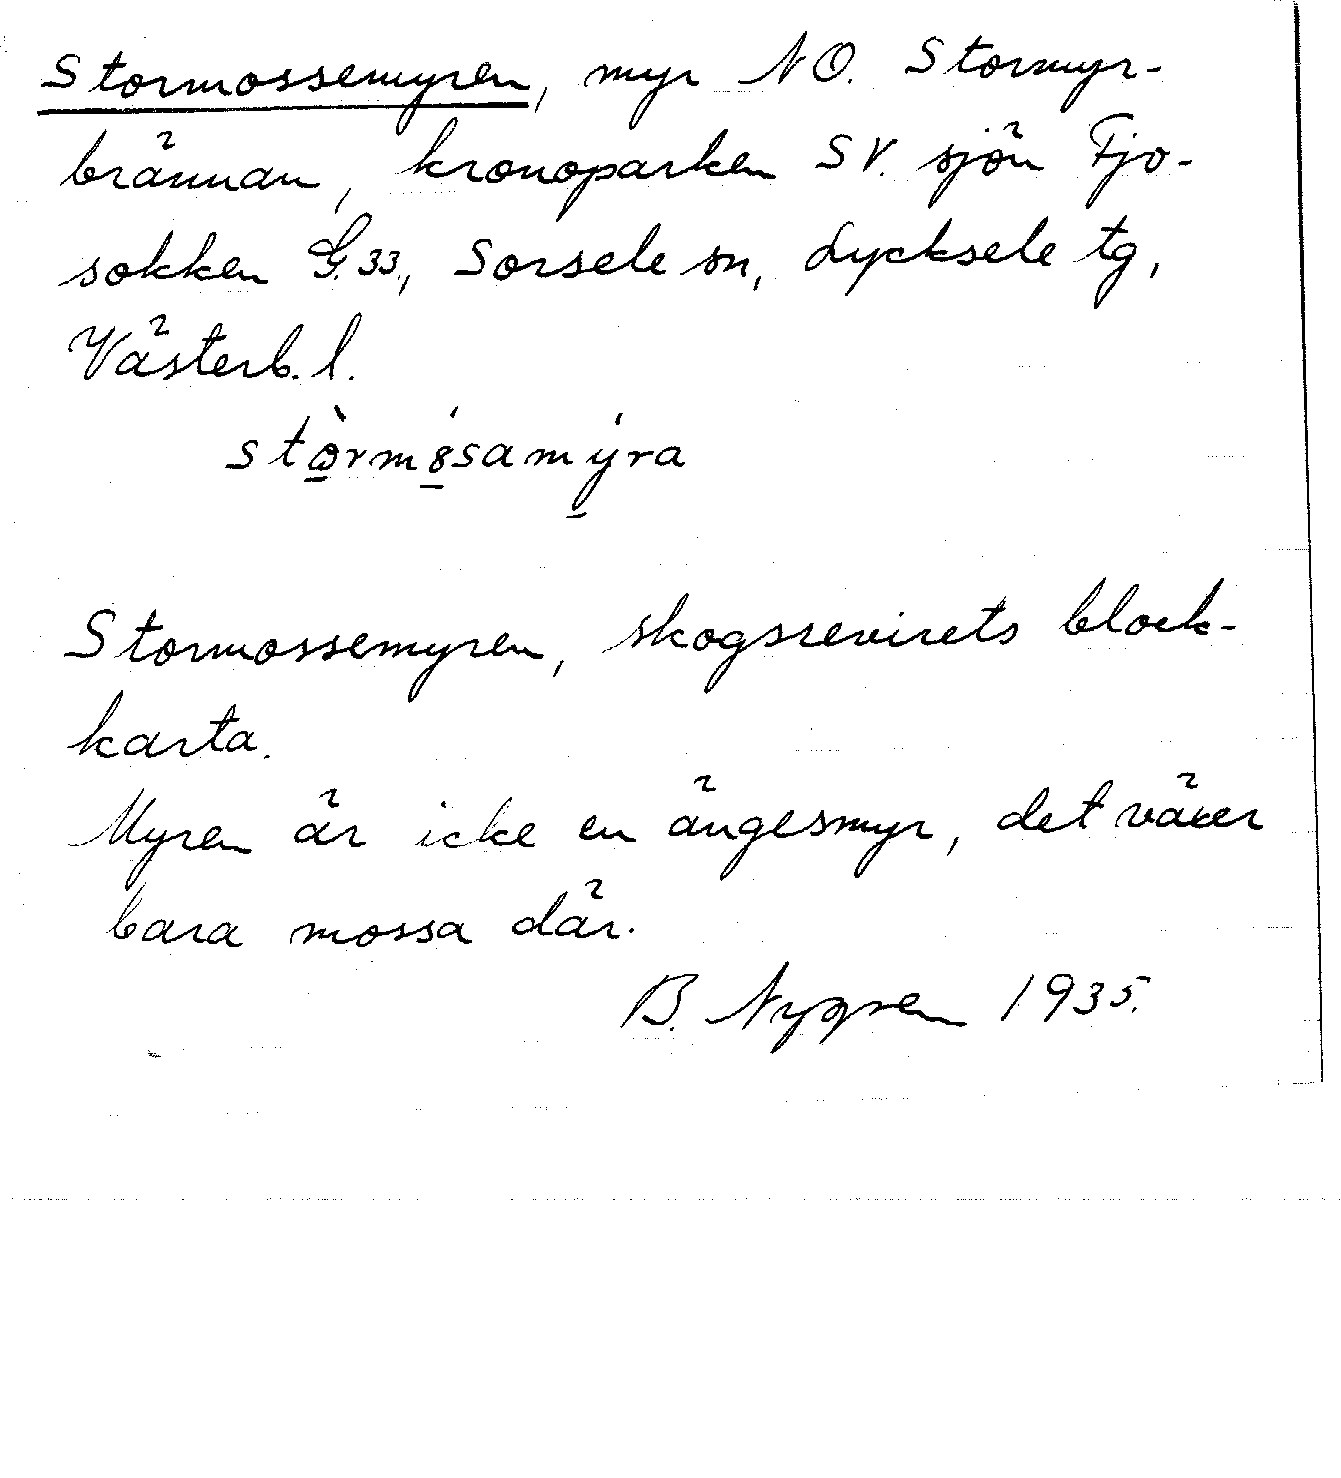 Stormossemyren, myr NO. Stormyr-
brännan, kronoparken SV. sjön Fjo-
sokken G.33, Sorsele sn, Lycksele tg,
Västerb. l.
stòrmósamýra
Stormossemyren, skogsrevirets block-
karta.
Myren är icke en ängesmyr, det växer
bara mossa där.
B. Nygren 1935.